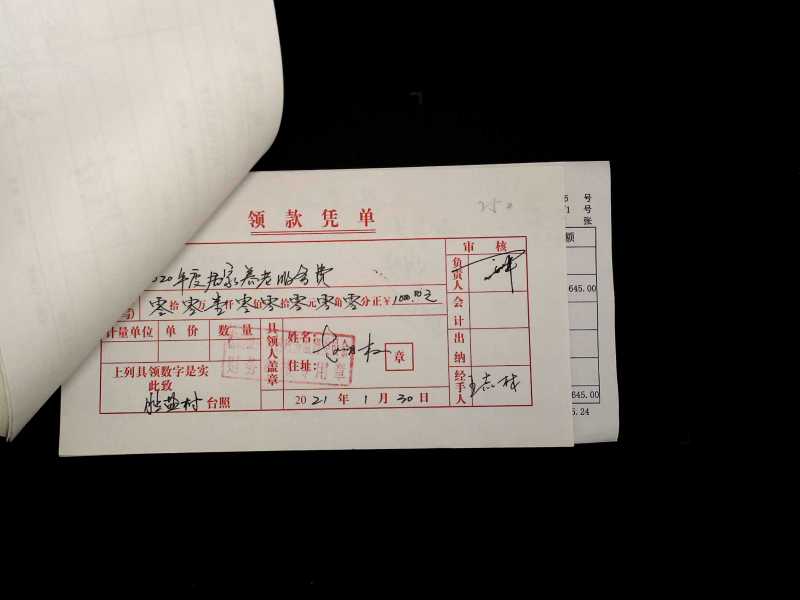 领款凭单
审核
020年度居家养老服务费
零拾零万壹仟零佰零拾零元零角零分正￥1000.00元
计量单位 单价 数量
上列具领数字是实
此致
盐村台照
具领人盖章
姓名：
住址：
章
2021年1月30日
负责人
会计
出纳
经手人
王志林
号
号
张
额
645.00
645.00
5.24